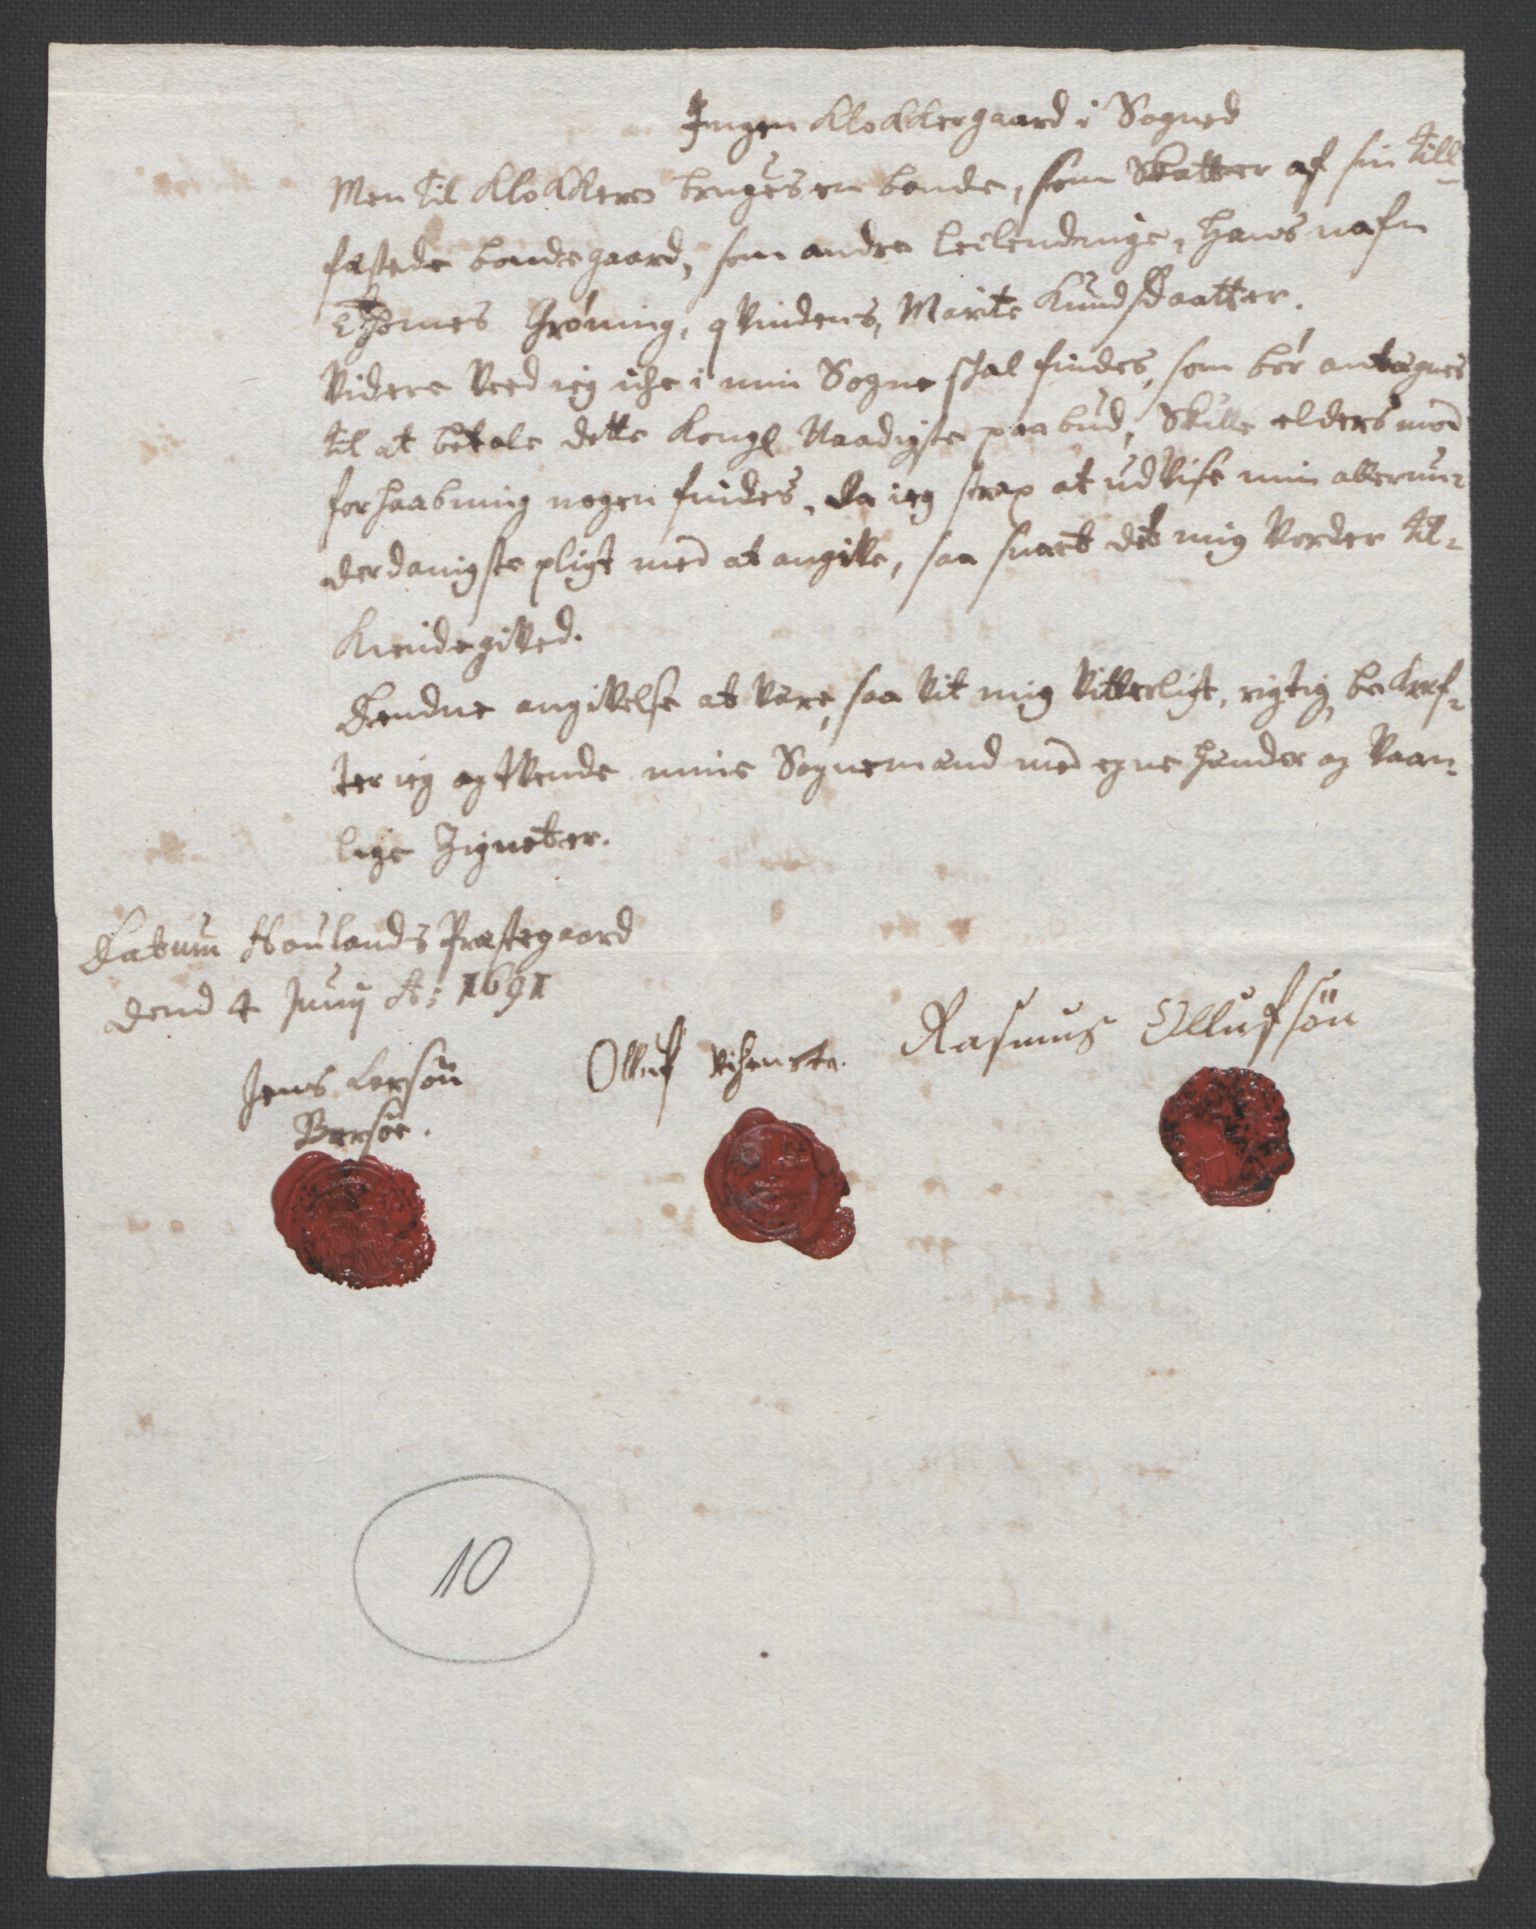 Ingen Klokkergaard i Sogned
Men til Klokkere bruges en bonde, som Skatter af sin till
fæstede bondegaard, som andre leilendinge, hans nafn
Thomes Grøning, qvindens, Marite Knudsdaatter.
Videre Veed ieg iche i min Sogne skal findes, som bør antegnes
til at betale dette Kongl Naadigste paabud, Skulle elders mod
forhaabning nogen findes, da ieg strax at udvise min allerun-
derdanigste pligt med at angive, saa snart det mig Vorder til-
kiendegived.
Dendne angivelse at være, saa vit mig vitterligt, rigtig, bekref-
ter ieg og tvende mine Sognemænd med egne hænder og vaan-
lige Zigneter.
Datum Houlands Præstegaard
dend 4 Junij Ao: 1691
Jens Lersøn
Bersøe.
Olluf
Rasmus Ollufsøn
10